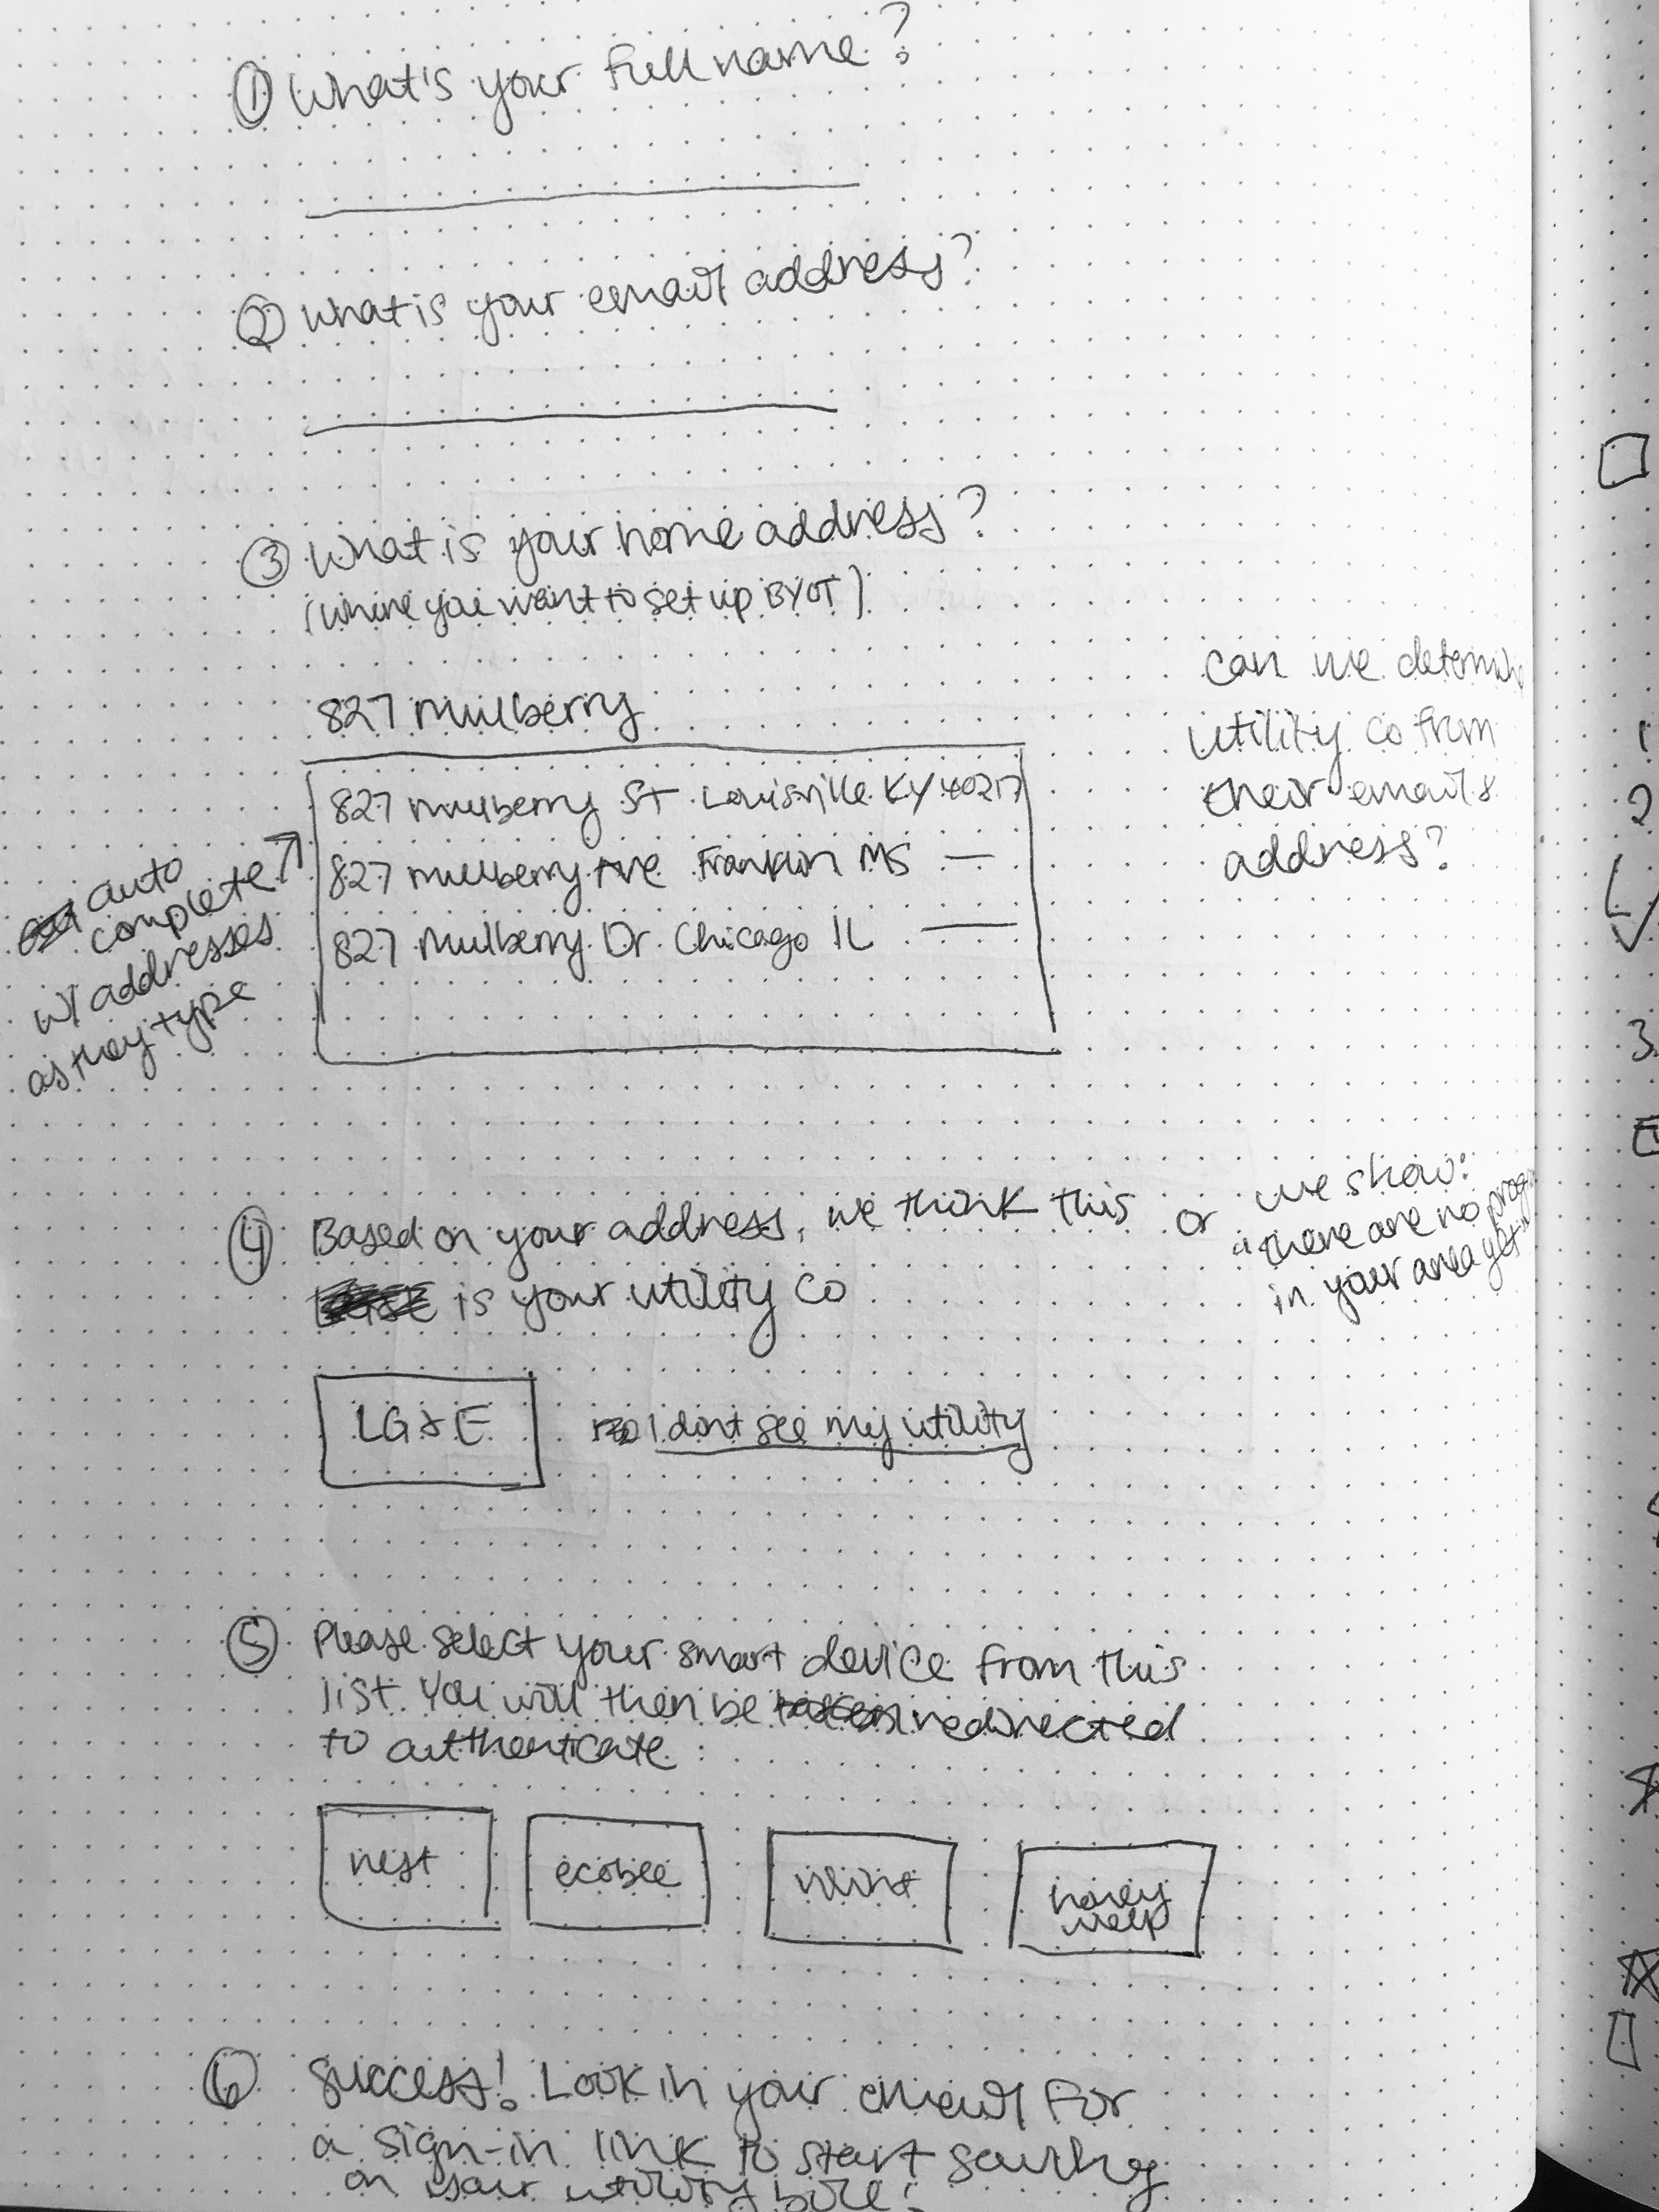 ① What's your full name?
② What is your email address?
③ What is your home address?
(where you want to set up BYOT)
827 Mulberry
827 Mulberry St Louisville KY 40217
827 Mulberry Ave Franklin MS —
827 Mulberry Dr. Chicago IL —
auto
complete
w/ addresses
as they type
can we determine
utility co from
their email &
address?
④ Based on your address, we think this
is your utility co
or we show:
"there are no prog
in your area yet"
LG&E
I dont see my utility
⑤ Please select your smart device from this
list. You will then be redirected
to authenticate:
nest
ecobee
vivint
honey
well
⑥ Success! Look in your email for
a sign-in link to start saving
on your utility bill!
1
2
3